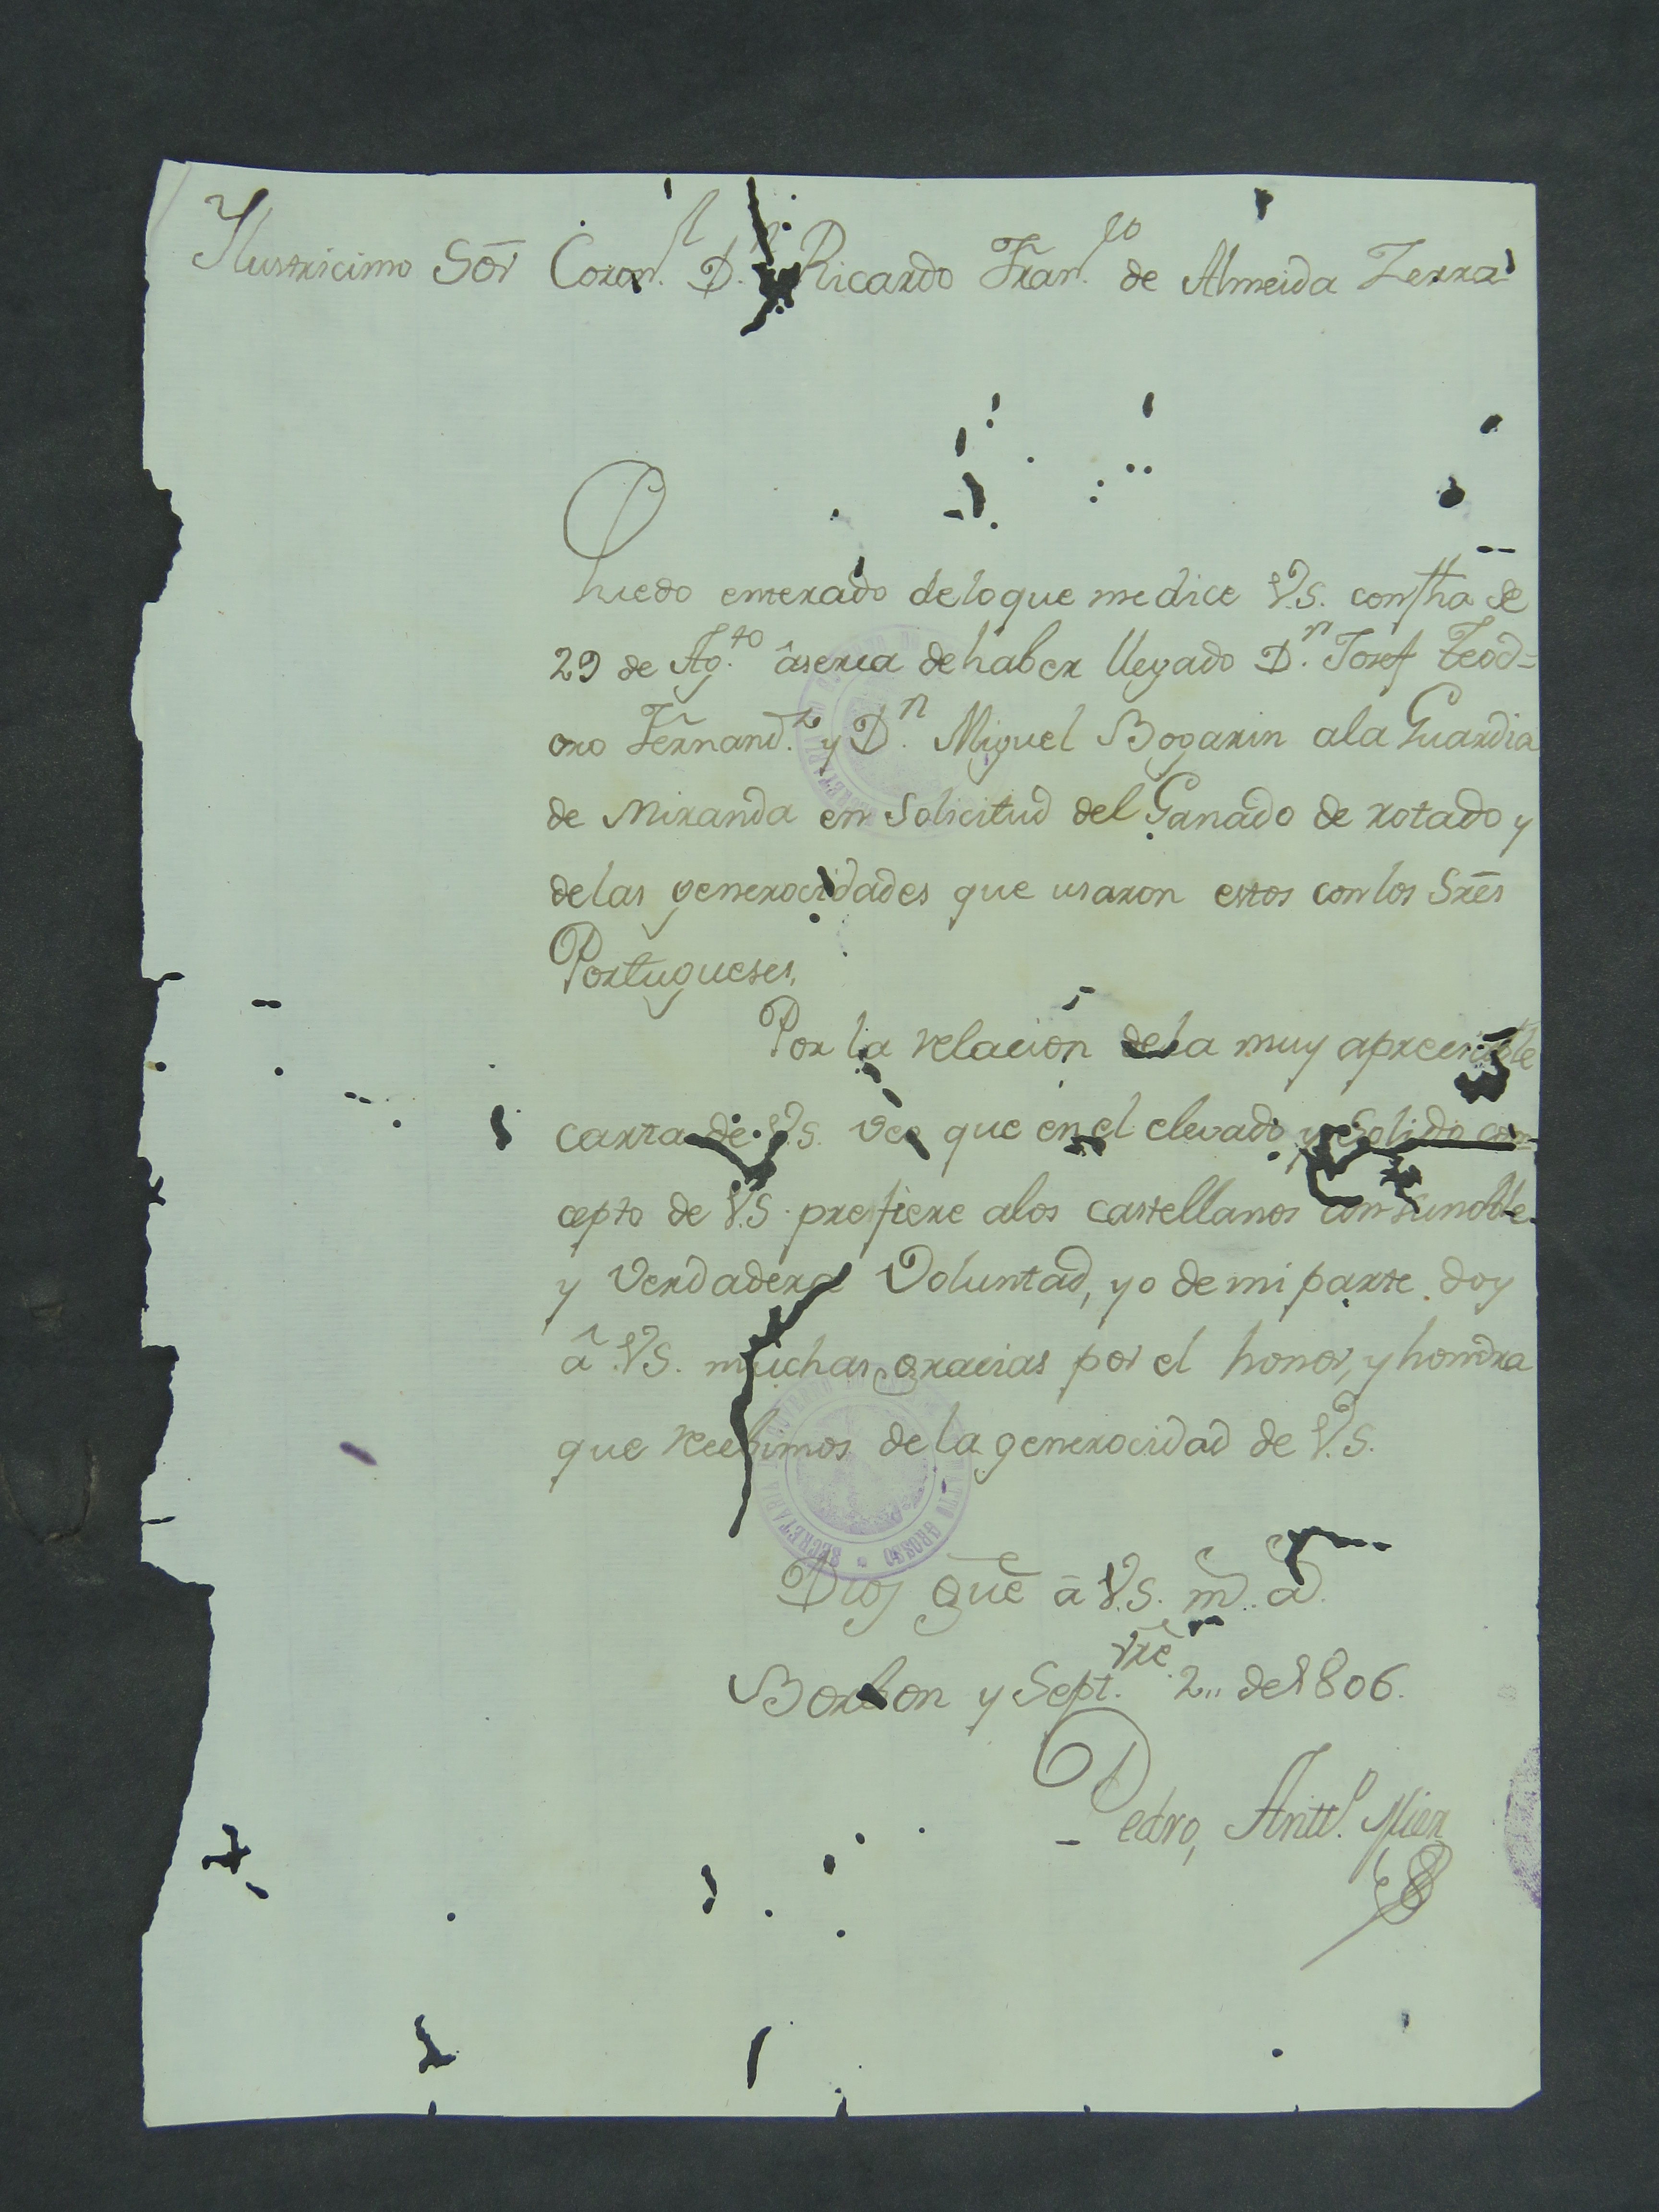 Ylustricimo Sōr Coron.l D.n Ricardo Fran.co de Almeida Zerra
Quedo enterado deloque medice V.S. confha de
29 de Ag.to âserca dehaber llegado D.n Josef Teod=
oro Fernand.z y D.n Miguel Bogarin ala Guardia
de Miranda en Solicitud del Ganado de rotado y
delas generocidades que usaron estos conlos Sres
Portugueses,
Por la relacion dela muy apreciable
carta de V.S. veo que en el elevado y Solido con=
cepto de V.S. prefiere alos castellanos con su noble
y Verdadera Voluntad, yo de mi parte doy
â V.S. muchas gracias por el honor, y hondra
que recebimos de la generocidad de V.S.
Dios gue â V.S. m.s a.s
Borbon y Sept.vre 2,, de 1806.
Pedro, Antt.o Mier
SECRETARIA GROSSO